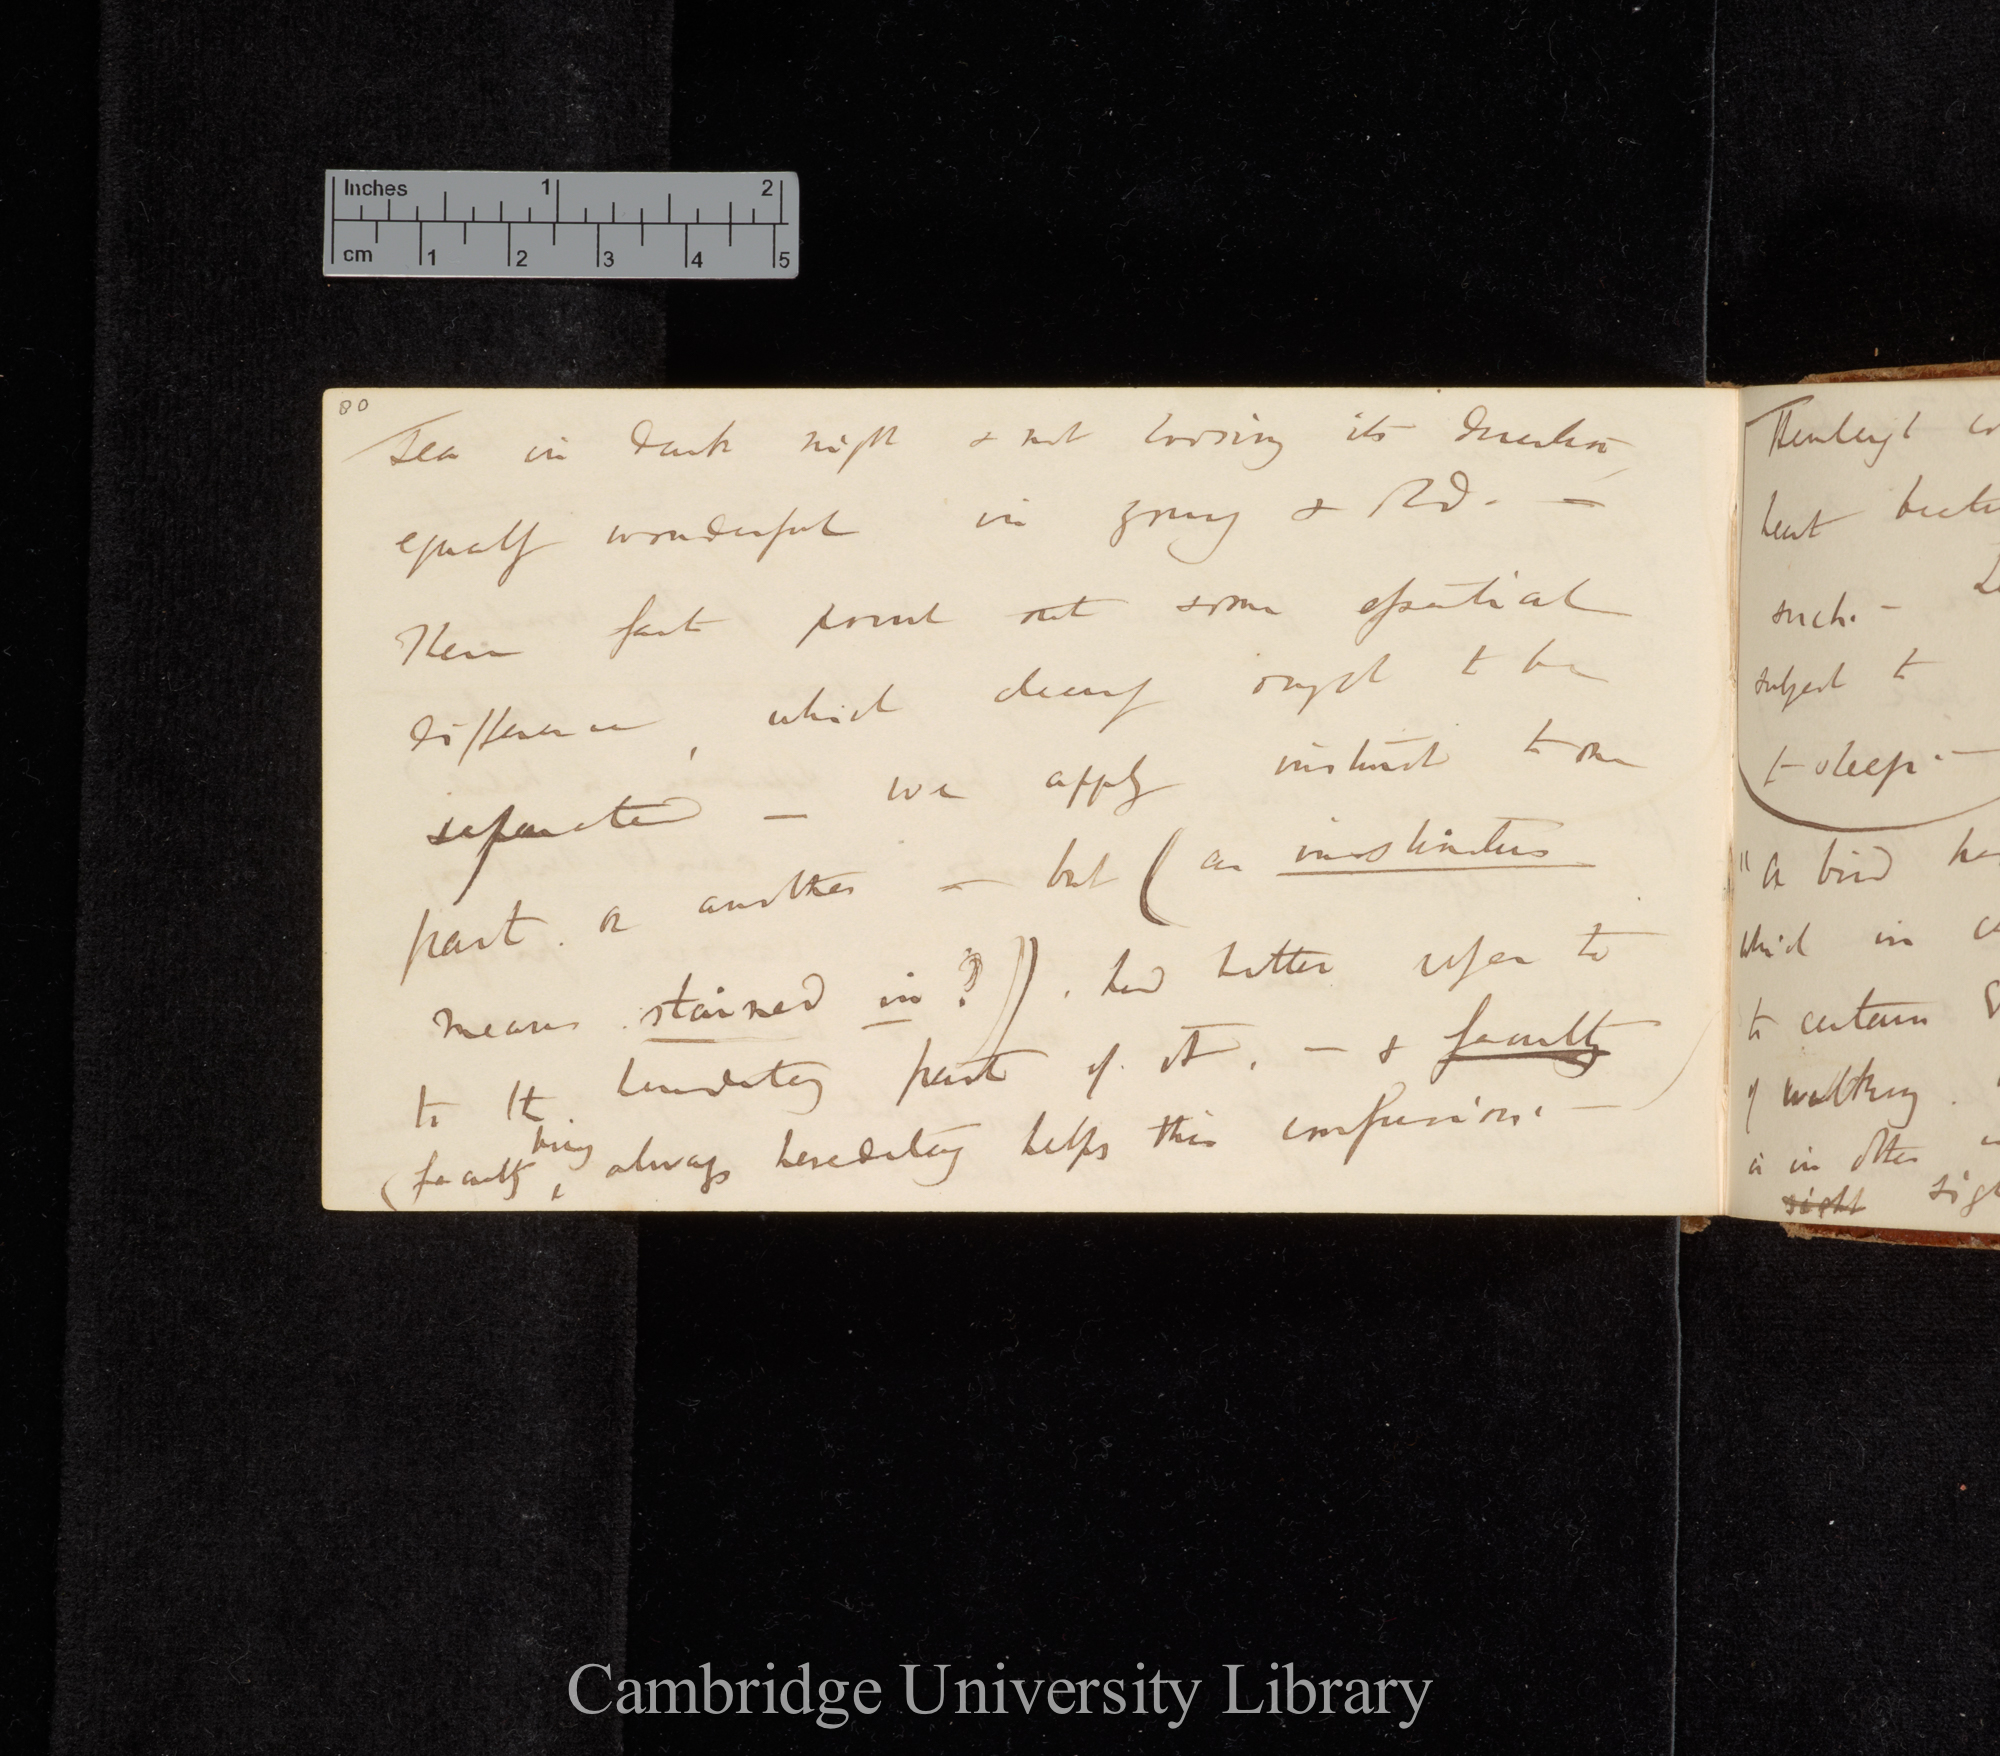 Inches 1 2
cm 1 2 3 4 5
80
Sea in dark night & not loosing its direction,
equally wonderful in young & Old. —
These facts point out some essential
difference, which clearly ought to be
separated — we apply instinct to one
part or another — but (as instinctus
means stained in?)). had better refer to
to the hereditary part of it. — & faculty
(faculty being always hereditary helps this confusion. —
Henleigh
heat
such. —
subject to
to sleep. —
"A bird
which in
to certain
of walking.
is in other
sight
Cambridge University Library